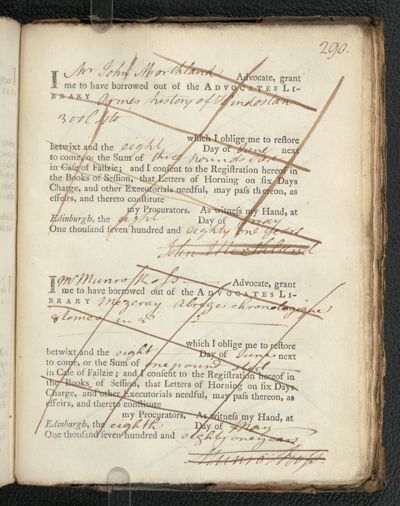 290.
I Mr John Morthland Advocate, grant
me to have borrowed out of the ADVOCATES LI-
BRARY Ormes history of Hindostan
3 vol 4to
which I oblige me to reſtore
betwixt and the eight Day of June next
to come, or the Sum of three pounds ster
in Caſe of Failzie; and I conſent to the Regiſtration hereof in
the Books of Seſſion, that Letters of Horning on ſix Days
Charge, and other Executorials needful, may paſs thereon, as
effeirs, and thereto conſtitute
my Procurators. As witneſs my Hand, at
Edinburgh, the eight Day of May
One thouſand ſeven hundred and eighty one years
John Morthland
I Mr Munro Ross Advocate, grant
me to have borrowed out of the ADVOCATES LI-
BRARY Mezeray Abrege chronologique
tomes in
which I oblige me to reſtore
betwixt and the eight Day of June next
to come, or the Sum of one pound
in Caſe of Failzie; and I conſent to the Regiſtration hereof in
the Books of Seſſion, that Letters of Horning on ſix Days
Charge, and other Executorials needful, may paſs thereon, as
effeirs, and thereto conſtitute
my Procurators. As witneſs my Hand, at
Edinburgh, the eighth Day of May
One thouſand ſeven hundred and eighty one years
Munro Ross